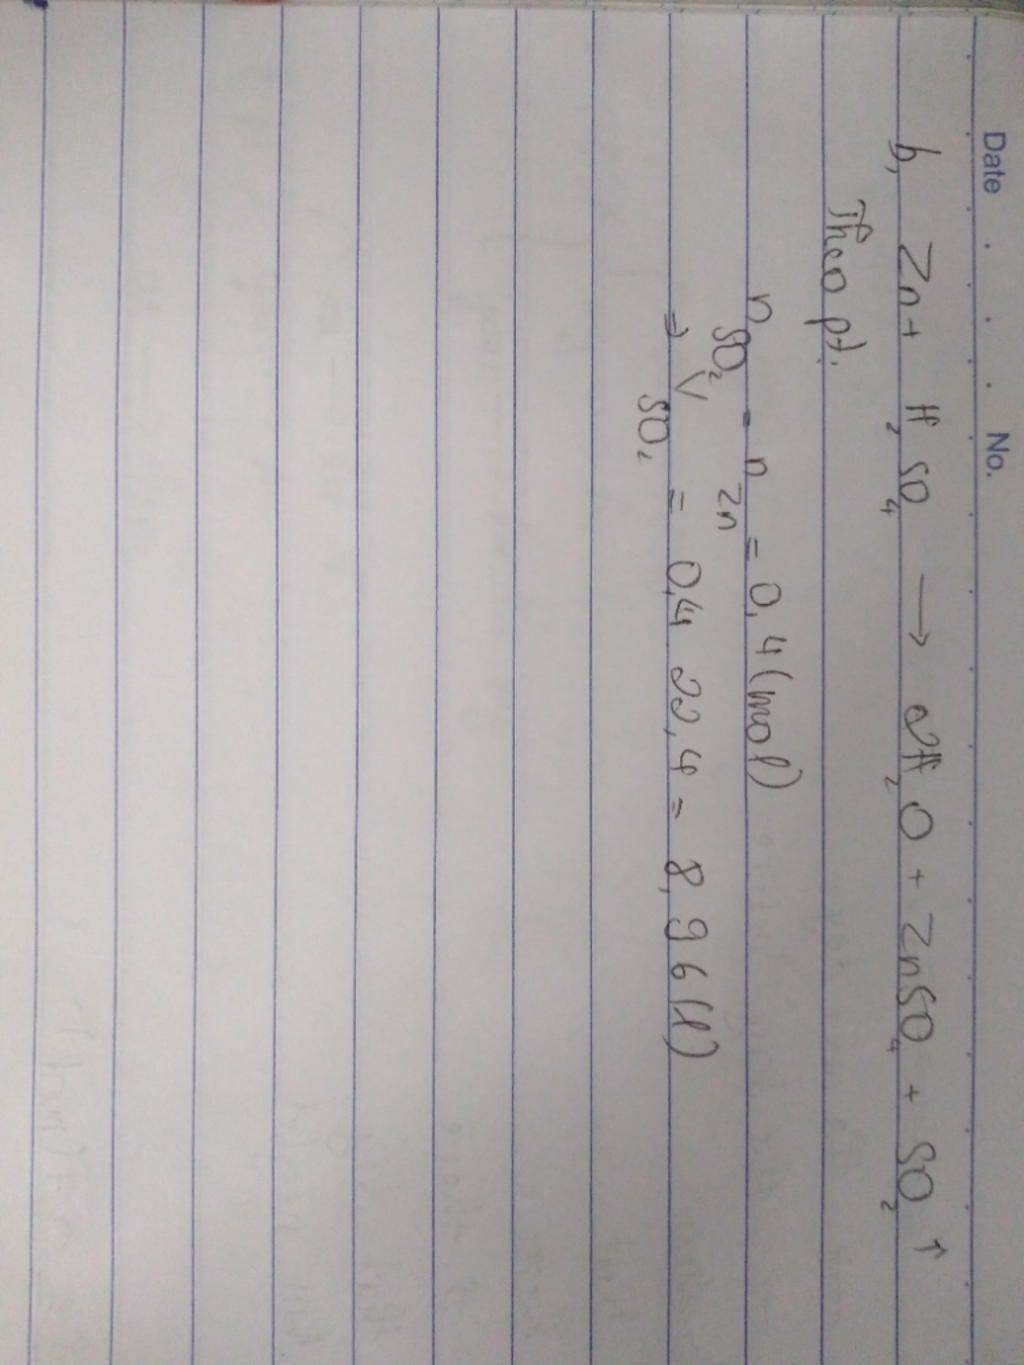 Date . . . No.
b, Zn + H2SO4 → 2H2O + ZnSO4 + SO2 ↑
Theo pt:
nSO2 = nZn = 0,4 (mol)
⇒ VSO2 = 0,4 22,4 = 8,96 (l)